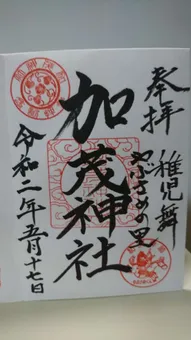 奉拝
稚児舞
やぶさめの里
加茂神社
令和二年五月十七日